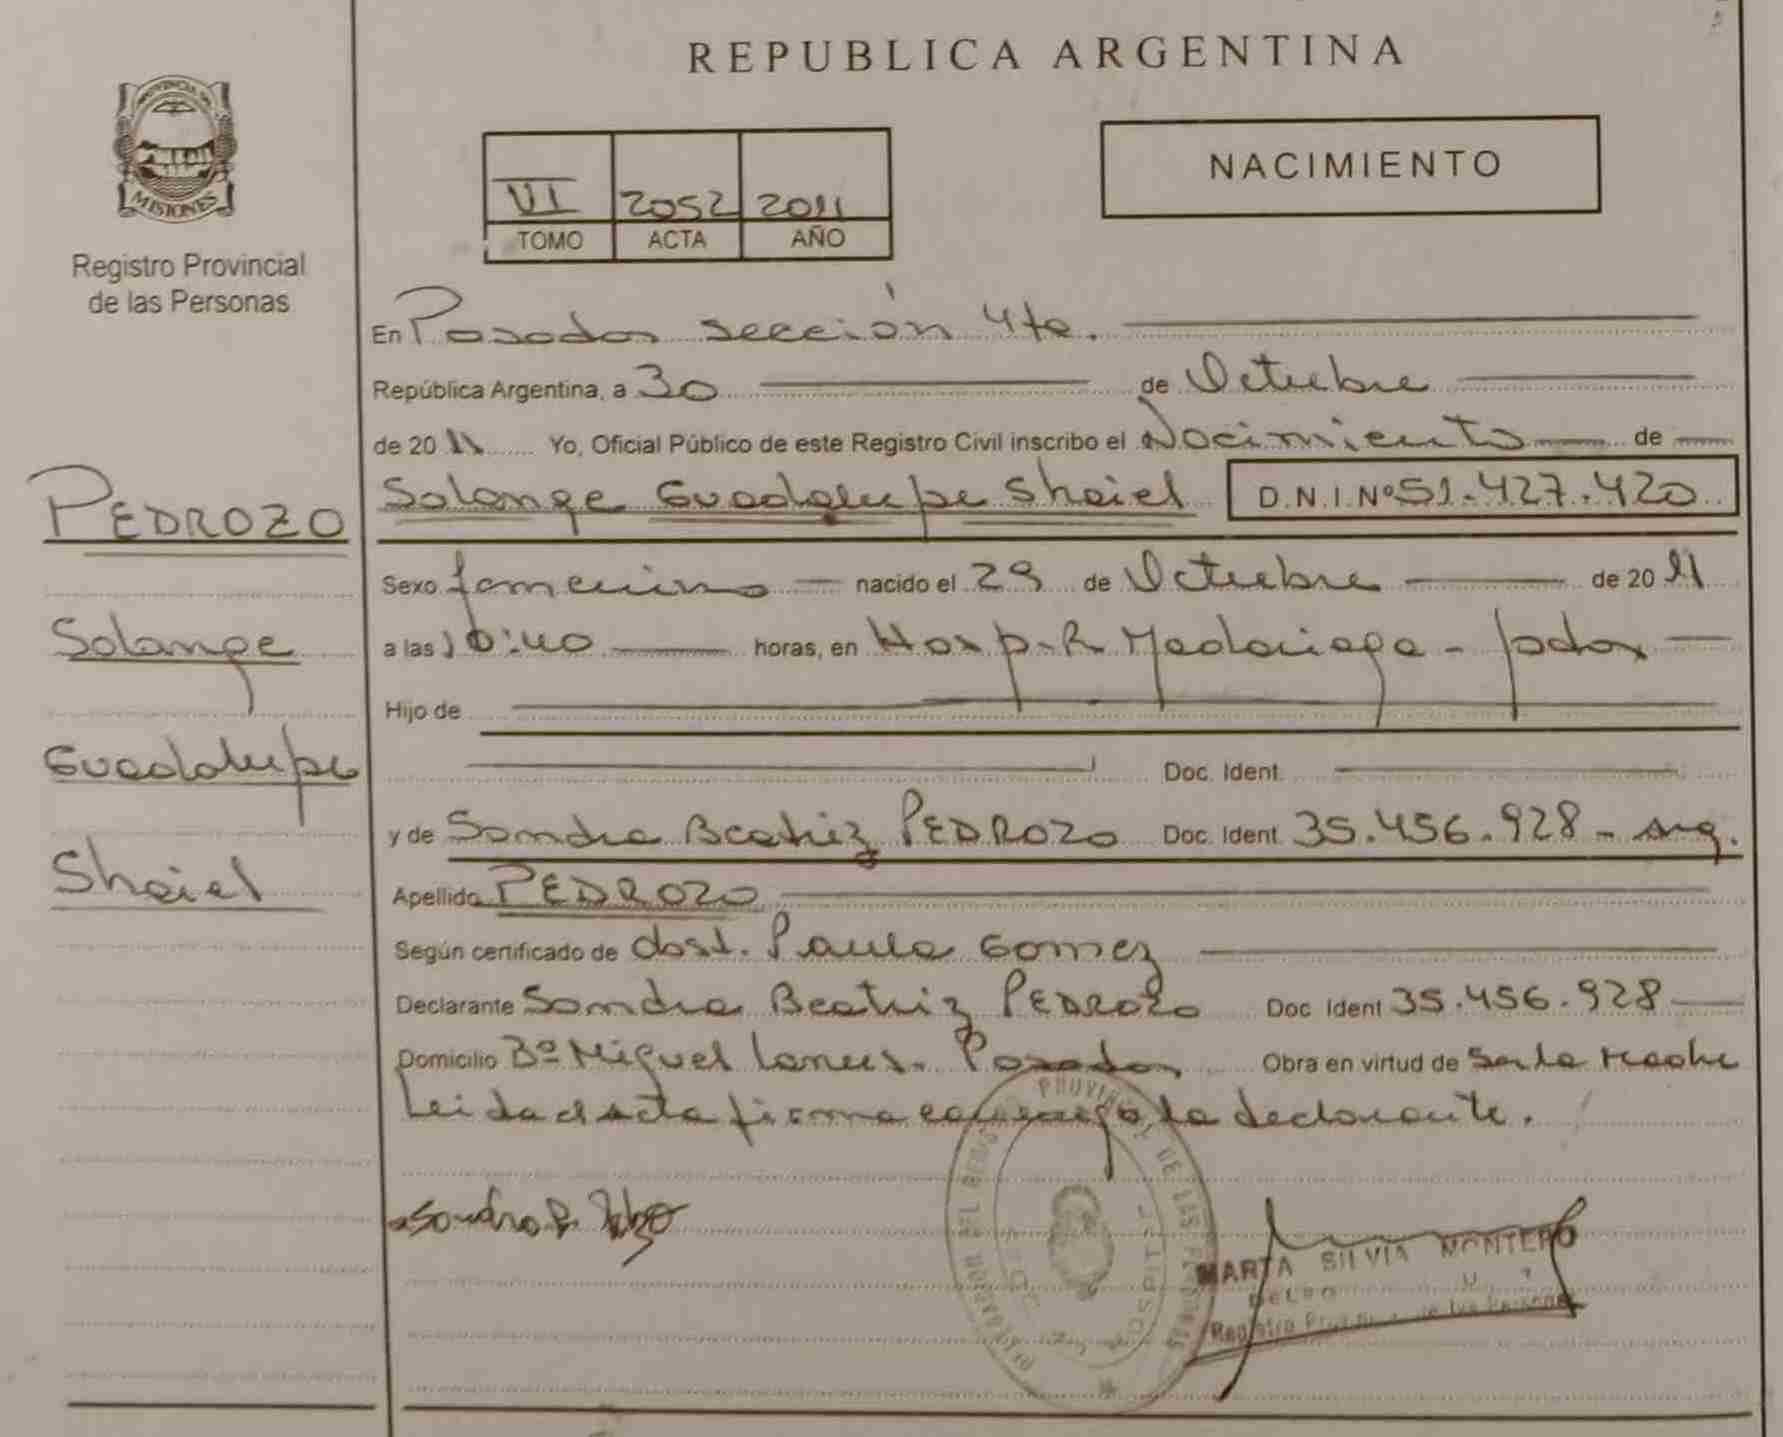 REPUBLICA ARGENTINA
PROVINCIA DE
MISIONES
Registro Provincial
de las Personas
VI 2052 2011
TOMO ACTA AÑO
NACIMIENTO
En Posadas sección 4ta.
República Argentina, a 30 de Octubre
de 2011 Yo, Oficial Público de este Registro Civil inscribo el Nacimiento de
Solange Guadalupe Shaiel D.N.I.Nº 51.427.420
PEDROZO
Solange
Guadalupe
Shaiel
Sexo femenino nacido el 29 de Octubre de 2011
a las 16:40 horas, en Hosp. R Madariaga - Psdas
Hijo de
Doc. Ident.
y de Sandra Beatriz PEDROZO Doc. Ident 35.456.928 - Arg.
Apellido PEDROZO
Según certificado de obst. Paula Gomez
Declarante Sandra Beatriz PEDROZO Doc Ident 35.456.928
Domicilio Bº Miguel Lanus. Posadas Obra en virtud de Ser la madre
Leida el acta firma conmigo la declarante.
Sandra B.
MARTA SILVIA MONTERO
Registro de las Personas